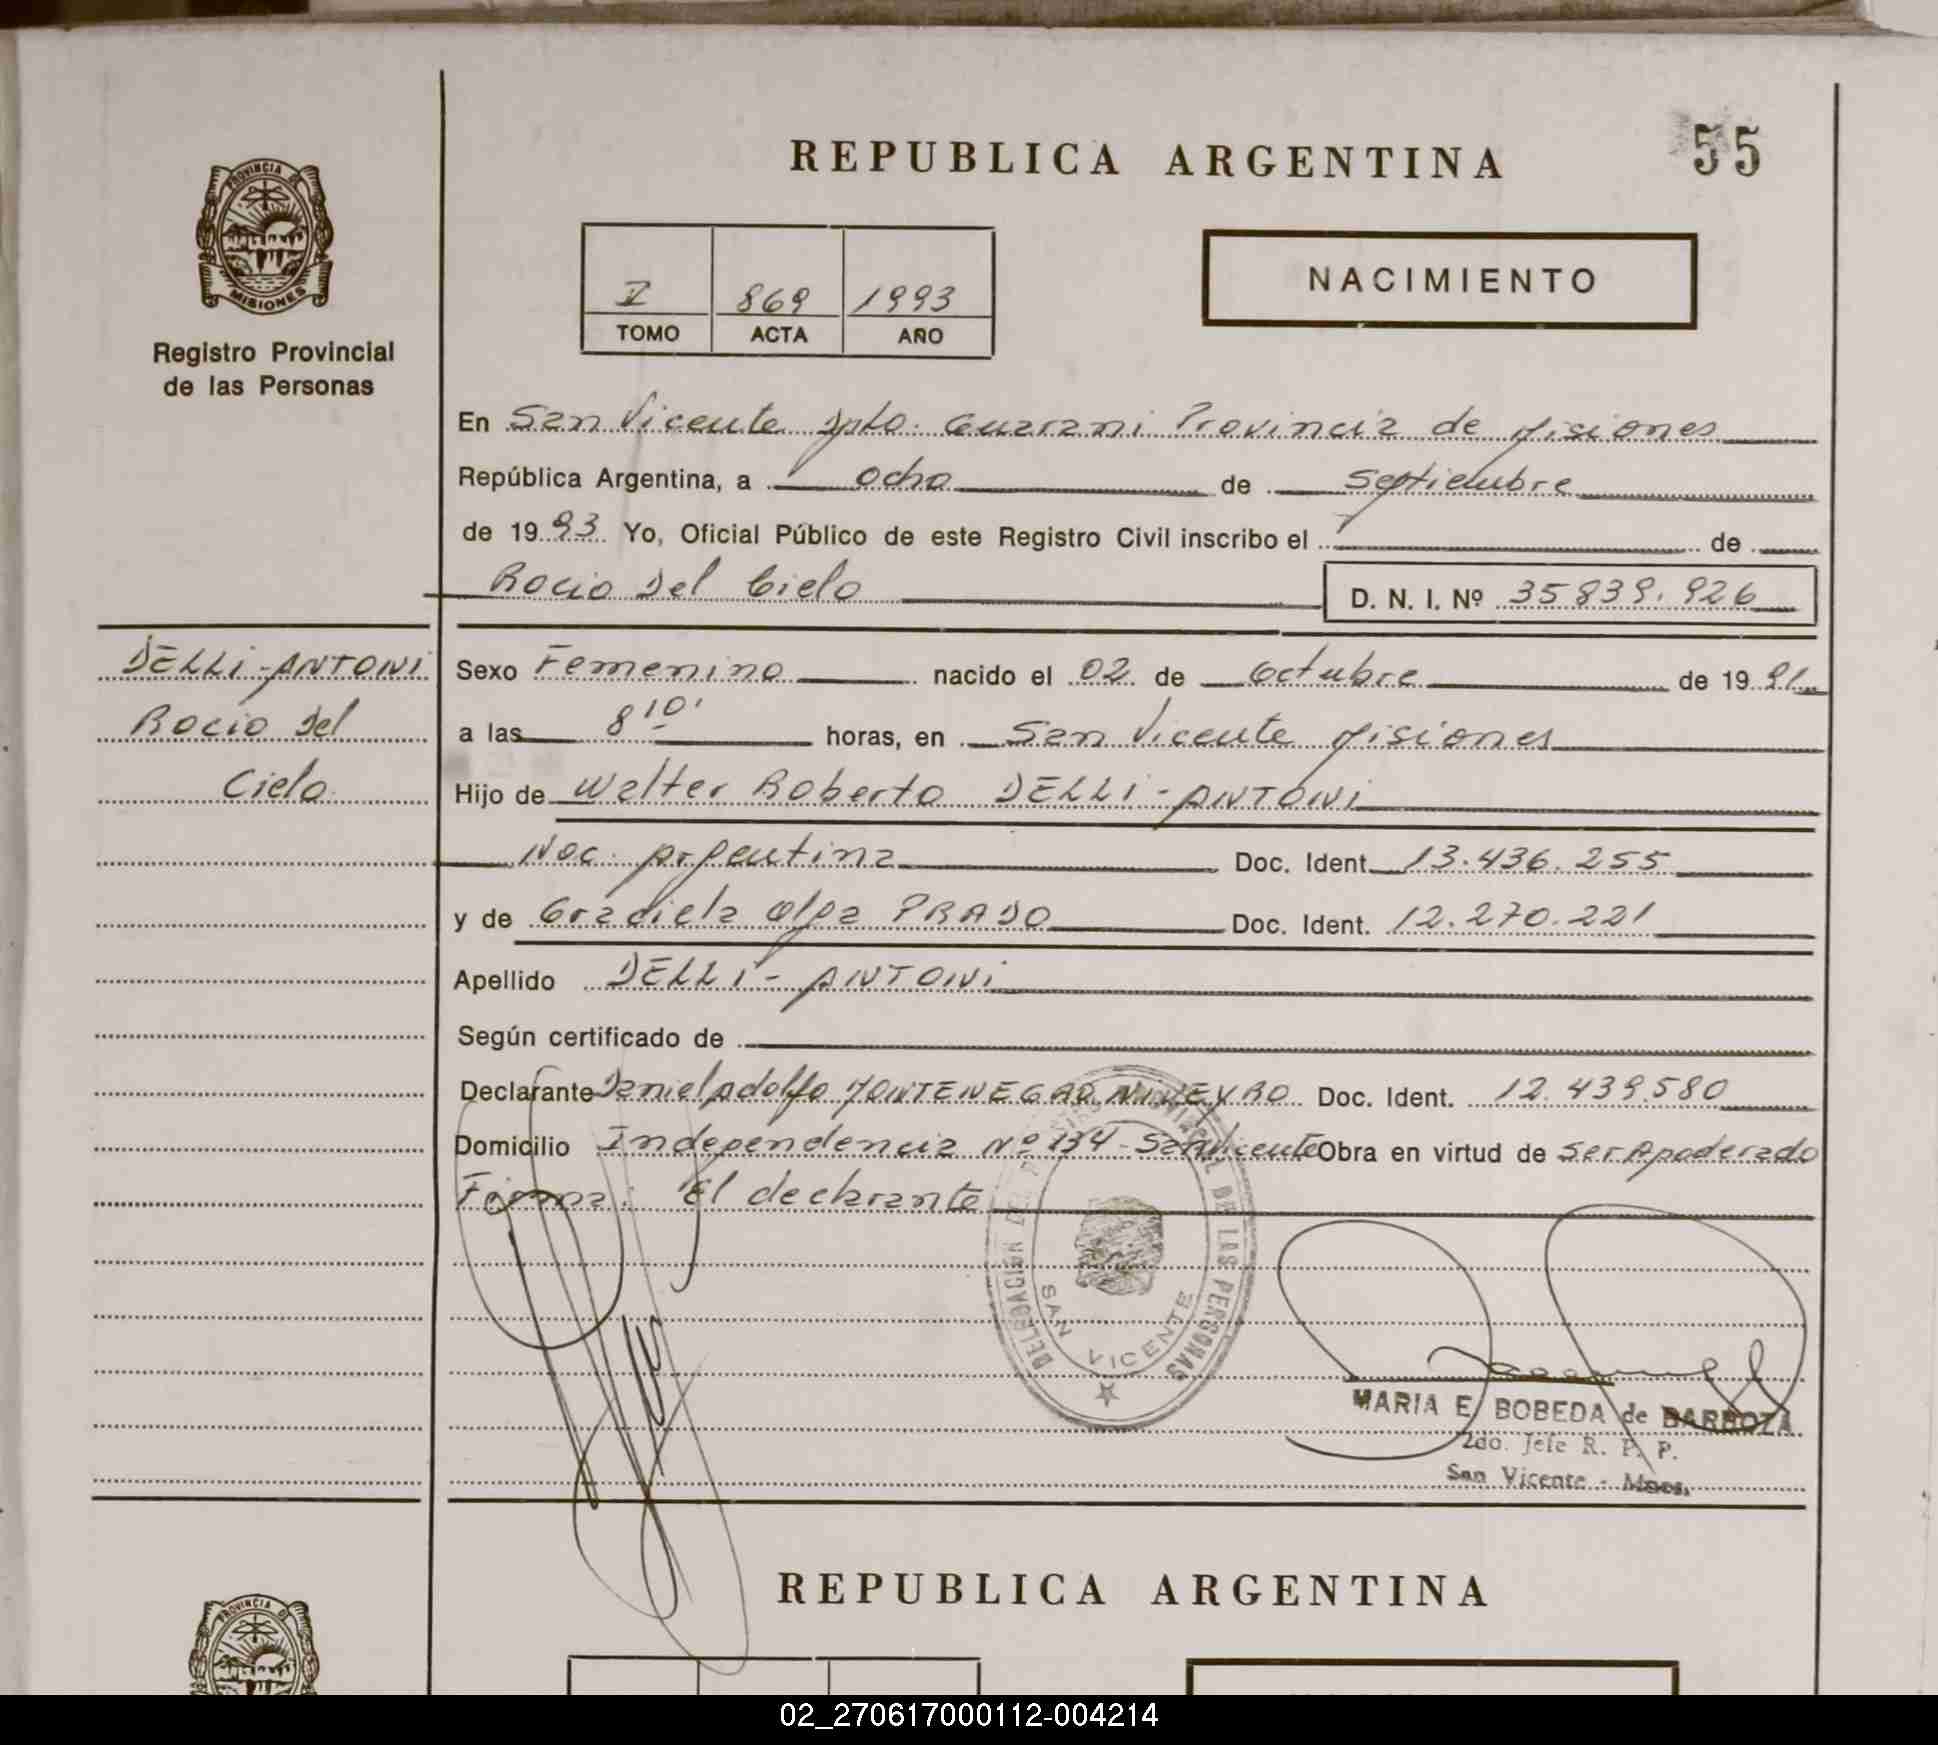 REPUBLICA ARGENTINA
55
PROVINCIA DE
MISIONES
Registro Provincial
de las Personas
I 869 1993
TOMO ACTA AÑO
NACIMIENTO
En San Vicente Dpto. Guarani Provincia de Misiones
República Argentina, a ocho de Septiembre
de 1993 Yo, Oficial Público de este Registro Civil inscribo el de
Rocio Del Cielo D. N. I. Nº 35839.926
DELLI-ANTONI
Rocio Del
Cielo
Sexo Femenino nacido el 02 de Octubre de 1991
a las 8 10' horas, en San Vicente Misiones
Hijo de Walter Roberto DELLI-ANTONI
Nac. Argentina Doc. Ident. 13.436.255
y de Graciela Olga PRADO Doc. Ident. 12.270.221
Apellido DELLI-ANTONI
Según certificado de
Declarante Daniel Adolfo MONTENEGRO NIVEYRO Doc. Ident. 12.439.580
Domicilio Independencia Nº 134-San Vicente Obra en virtud de Ser Apoderado
Firma: El declarante
DELEGACION DEL REGISTRO PROVINCIAL DE LAS PERSONAS
SAN VICENTE
MARIA E. BOBEDA de BARBOZA
2do. Jefe R. P. P.
San Vicente - Mnes.
REPUBLICA ARGENTINA
PROVINCIA DE
02_270617000112-004214